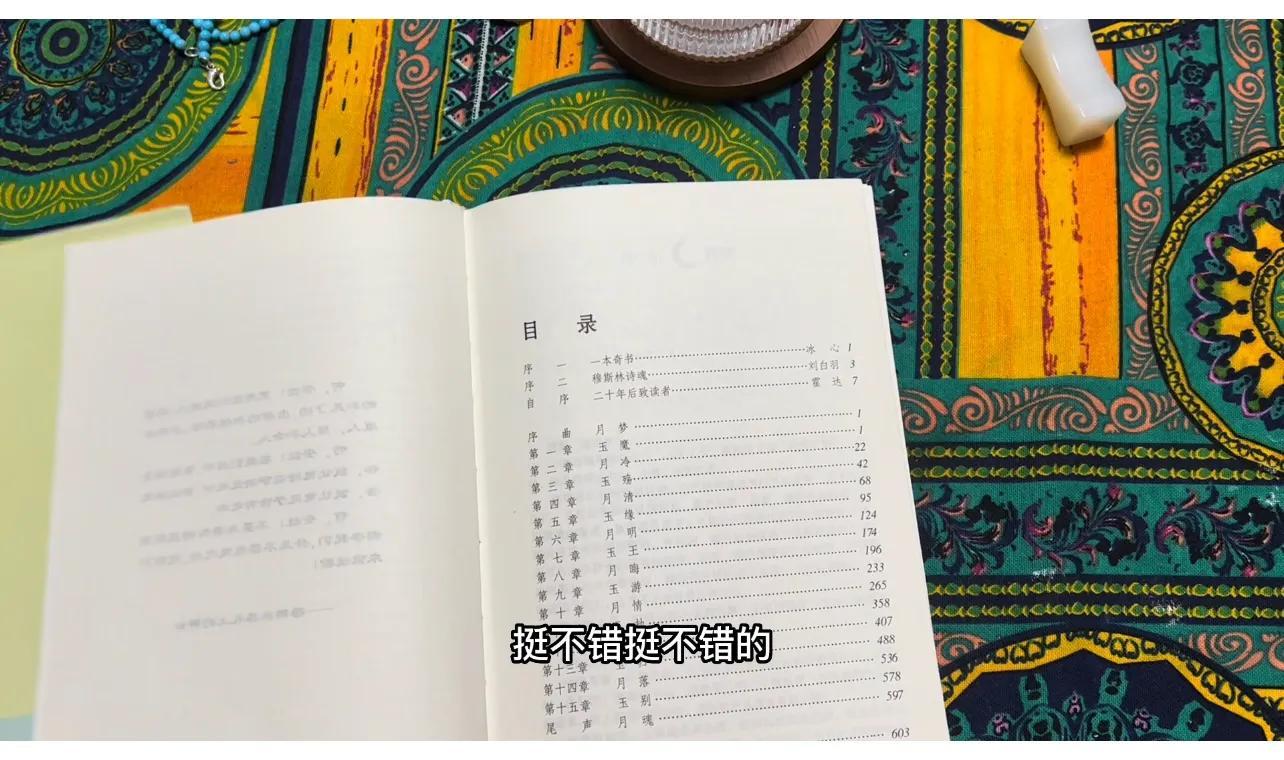 目 录
序 一 一本奇书……冰 心 1
序 二 穆斯林诗魂……刘白羽 3
自 序 二十年后致读者……霍 达 7
序 曲 月 梦……1
第一章 玉 魔……1
第二章 月 冷……22
第三章 玉……42
第四章 月 清……68
第五章 玉 缘……95
第六章 月 明……124
第七章 玉 王……174
第八章 月 晦……196
第九章 玉 游……233
第十章 月 情……265
……358
……407
第十三章 玉……488
第十四章 月 落……536
第十五章 玉 别……578
尾 声 月 魂……597
……603
挺不错挺不错的